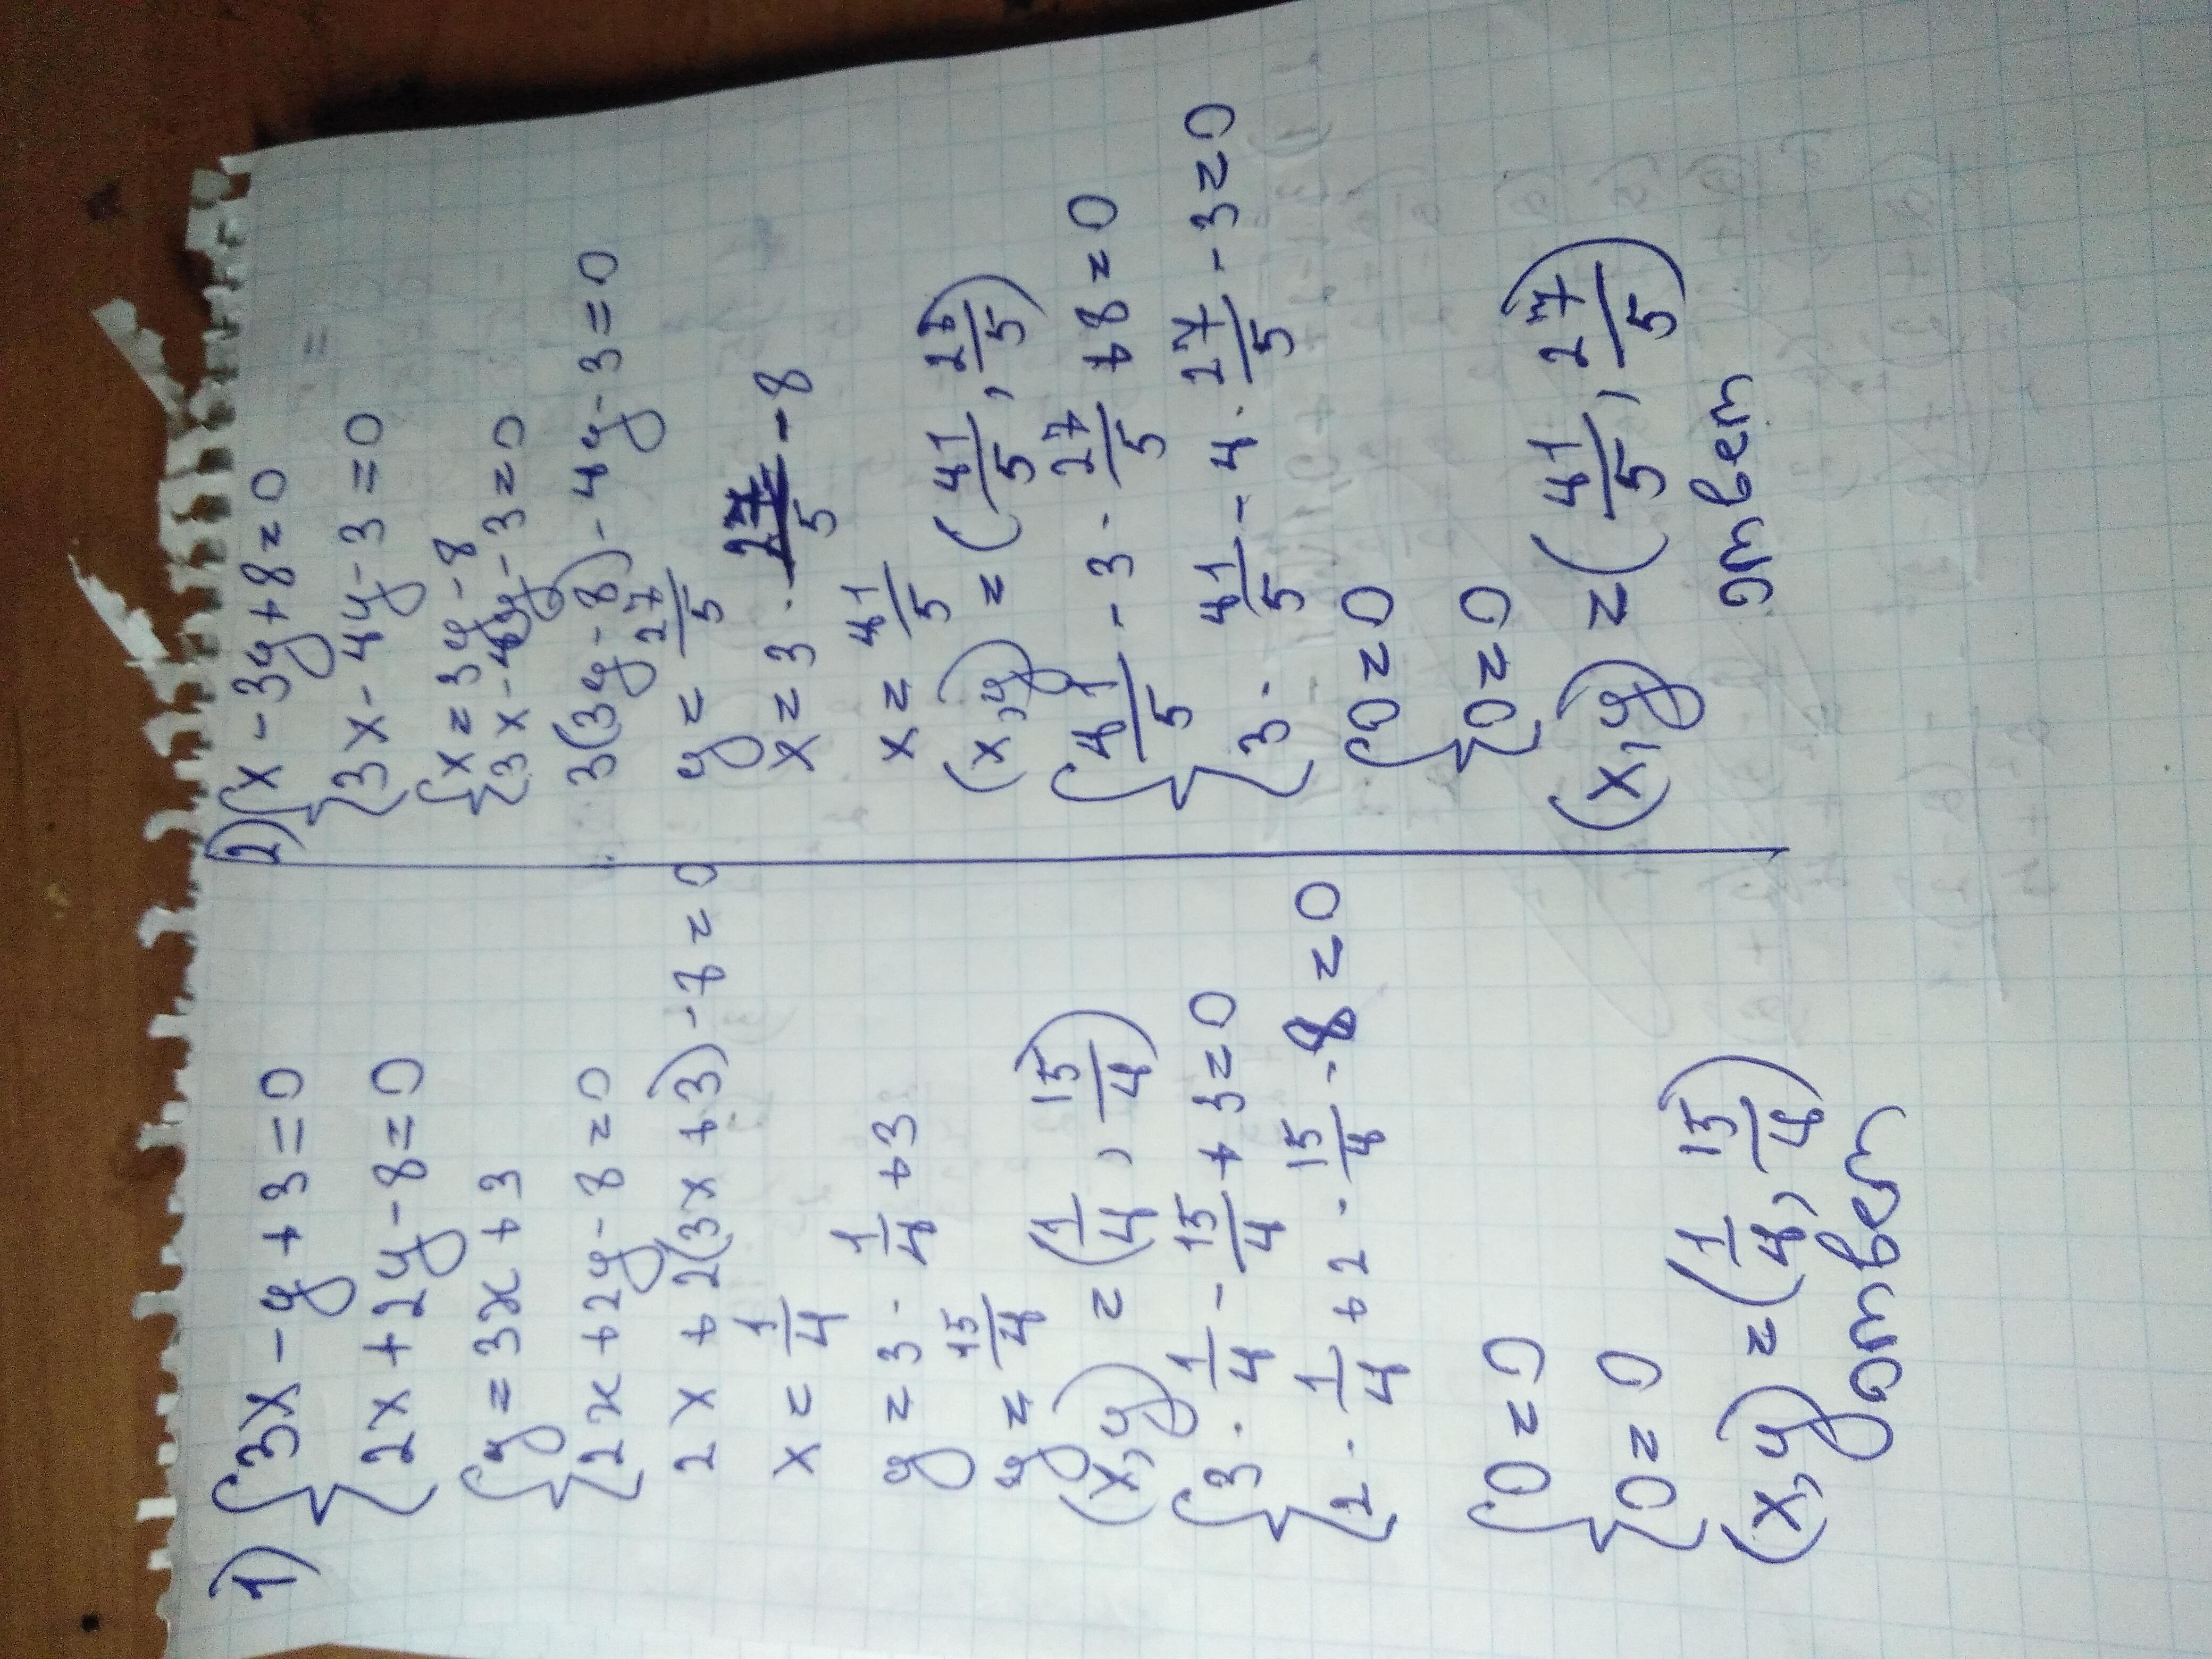 1) {3x - y + 3 = 0
{2x + 2y - 8 = 0
{y = 3x + 3
{2x + 2y - 8 = 0
2x + 2(3x + 3) - 8 = 0
x = 1/4
y = 3 · 1/4 + 3
y = 15/4
(x, y) = (1/4, 15/4)
{3 · 1/4 - 15/4 + 3 = 0
{2 · 1/4 + 2 · 15/4 - 8 = 0
{0 = 0
{0 = 0
(x, y) = (1/4, 15/4)
ответ
2) {x - 3y + 8 = 0
{3x - 4y - 3 = 0
{x = 3y - 8
{3x - 4y - 3 = 0
3(3y - 8) - 4y - 3 = 0
y = 27/5
x = 3 · 27/5 - 8
x = 41/5
(x, y) = (41/5, 27/5)
{41/5 - 3 · 27/5 + 8 = 0
{3 · 41/5 - 4 · 27/5 - 3 = 0
{0 = 0
{0 = 0
(x, y) = (41/5, 27/5)
ответ